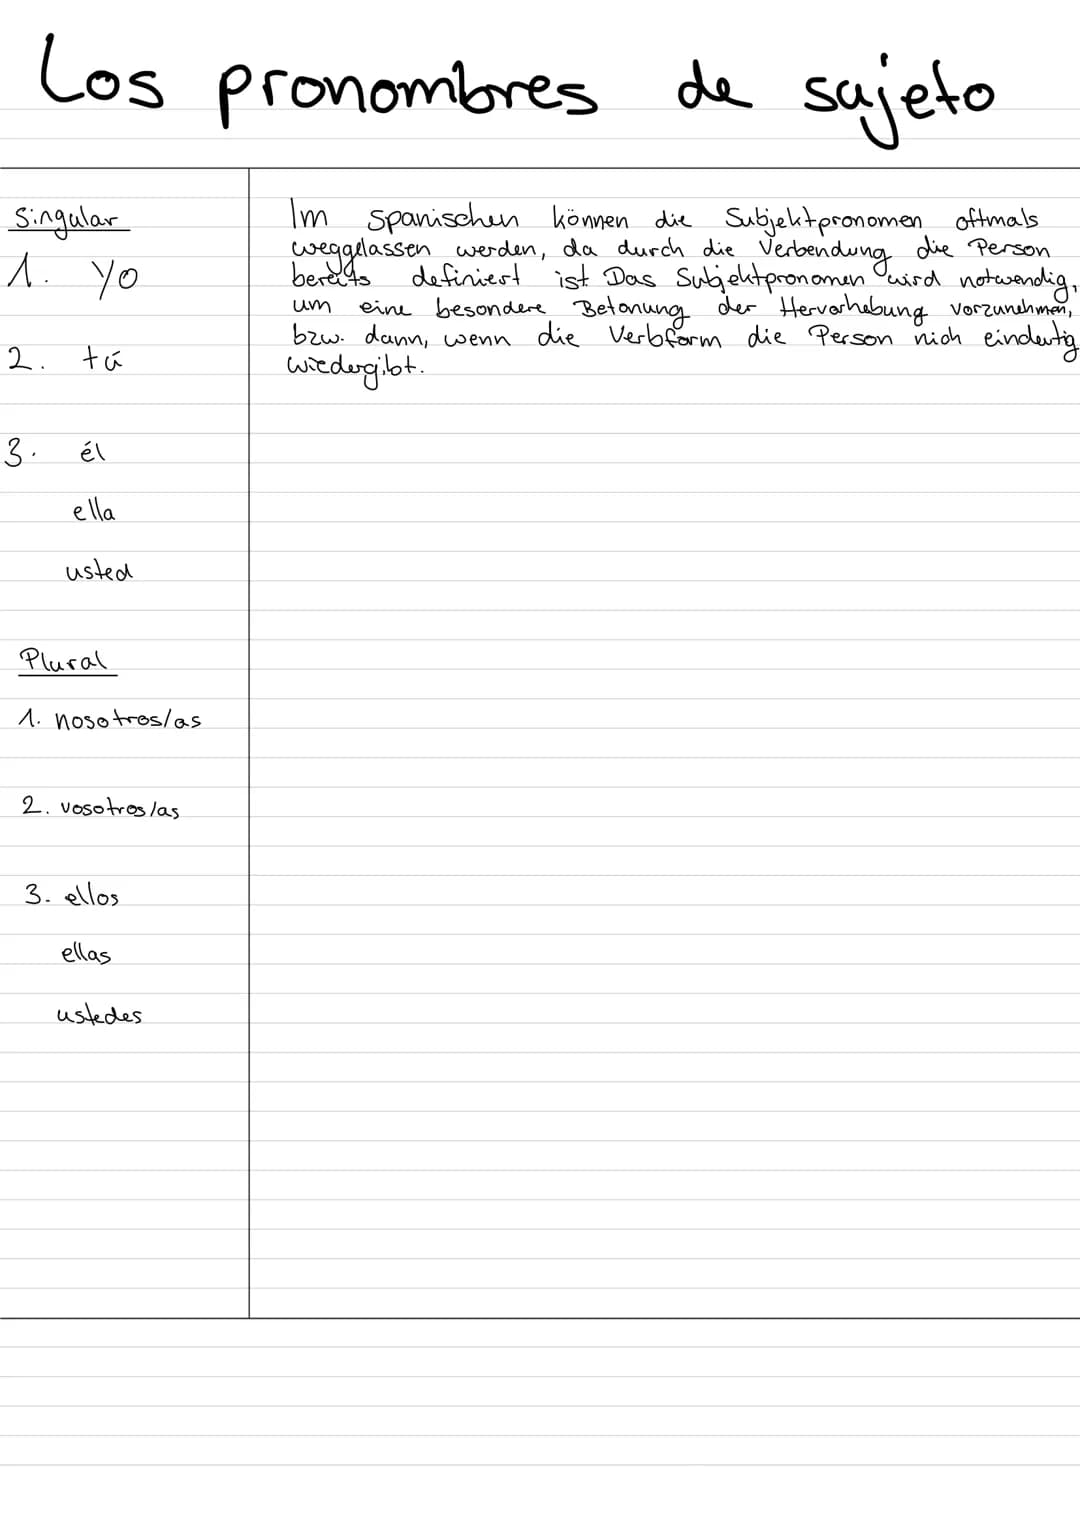 Los pronombres de sujeto
Singular
1. yo
2. tú
3. él
ella
usted
Plural
1. nosotros/as
2. vosotros/as
3. ellos
ellas
ustedes
Im Spanischen können die Subjektpronomen oftmals
weggelassen werden, da durch die Verbendung die Person
bereits definiert ist Das Subjektpronomen wird notwendig,
um eine besondere Betonung der Hervorhebung vorzunehmen,
bzw. dann, wenn die Verbform die Person nich eindeutig
wiedergibt.